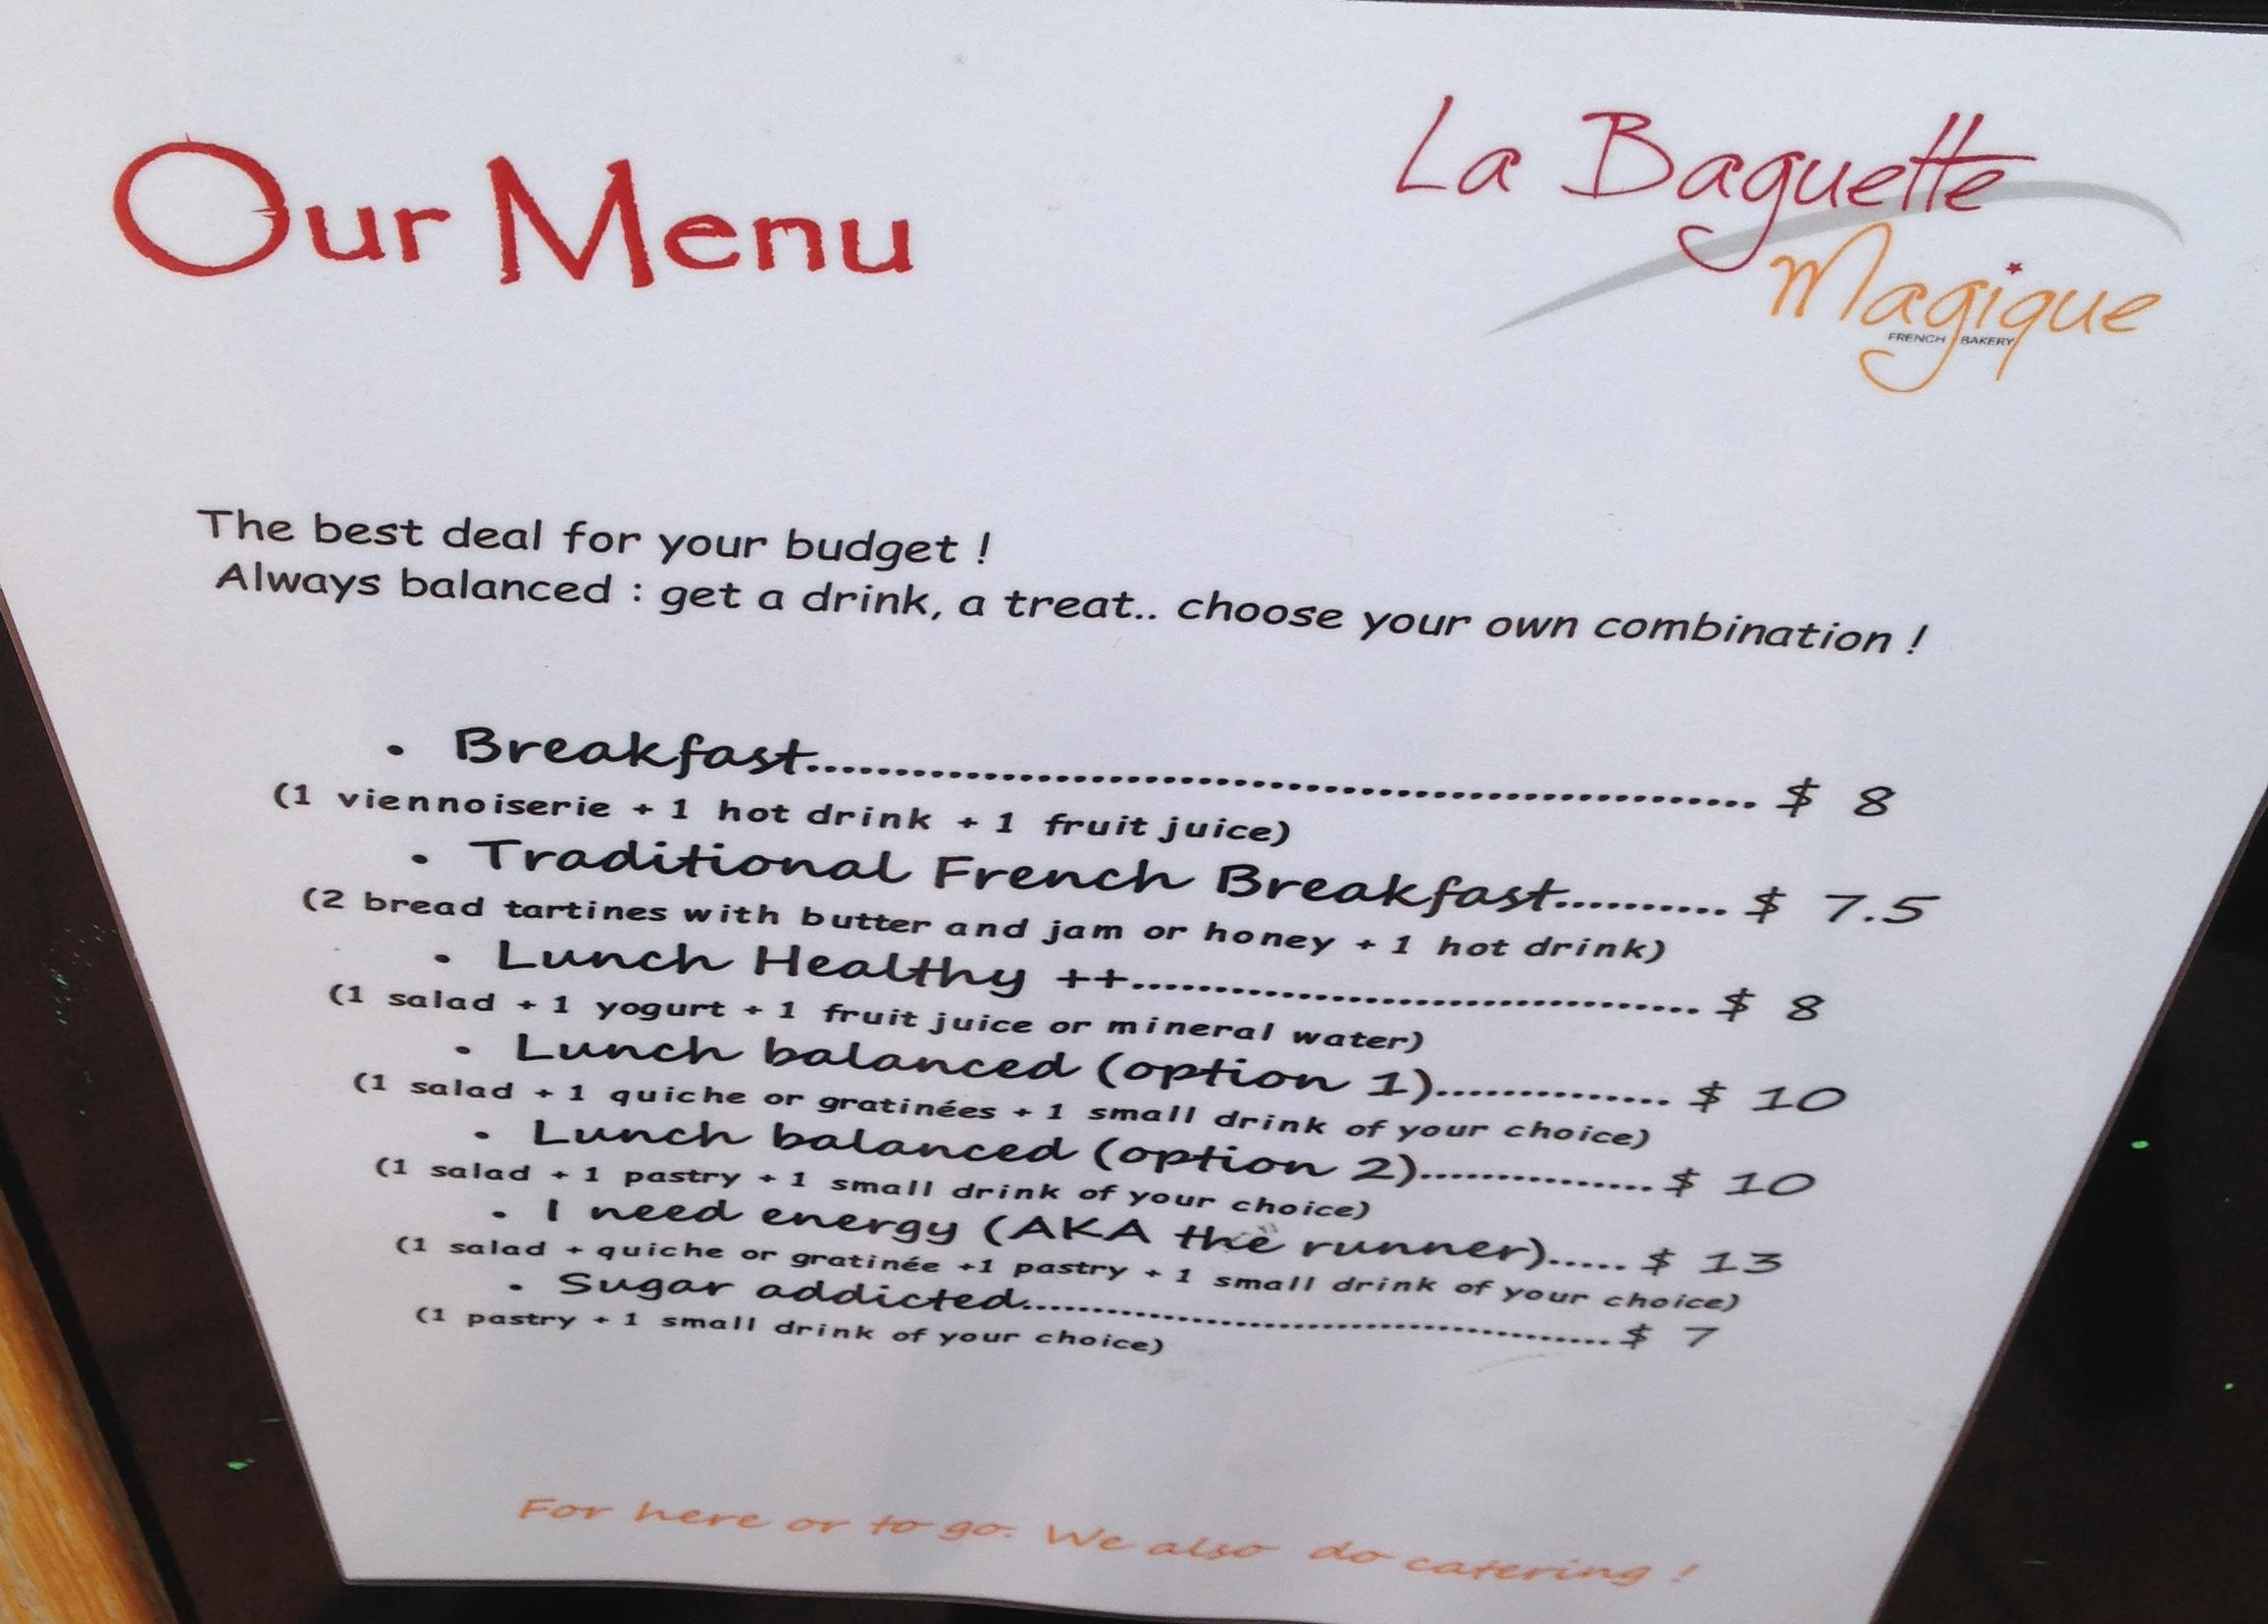 Our Menu
La Baguette
Magique
FRENCH BAKERY
The best deal for your budget !
Always balanced : get a drink, a treat.. choose your own combination !
• Breakfast.......................................................... $ 8
(1 viennoiserie + 1 hot drink + 1 fruit juice)
• Traditional French Breakfast.......... $ 7.5
(2 bread tartines with butter and jam or honey + 1 hot drink)
• Lunch Healthy ++.................................... $ 8
(1 salad + 1 yogurt + 1 fruit juice or mineral water)
• Lunch balanced (option 1).............. $ 10
(1 salad + 1 quiche or gratinées + 1 small drink of your choice)
• Lunch balanced (option 2)............... $ 10
(1 salad + 1 pastry + 1 small drink of your choice)
• I need energy (AKA the runner)..... $ 13
(1 salad + quiche or gratinée +1 pastry + 1 small drink of your choice)
• Sugar addicted.......................................... $ 7
(1 pastry + 1 small drink of your choice)
For here or to go. We also do catering !